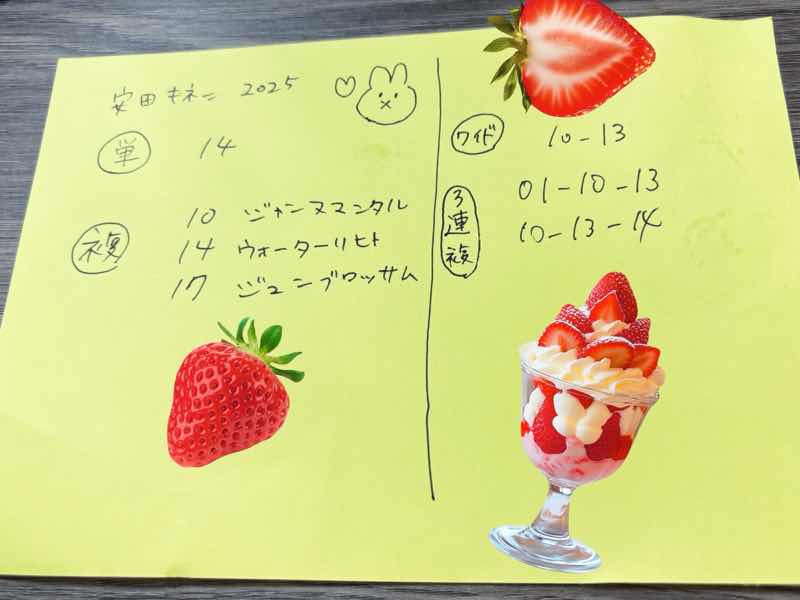 安田キネン 2025
単 14
複 10 ジャンヌマンタル
14 ウォーターリヒト
17 ジュンブロッサム
ワイド 10-13
3連複 01-10-13
10-13-14